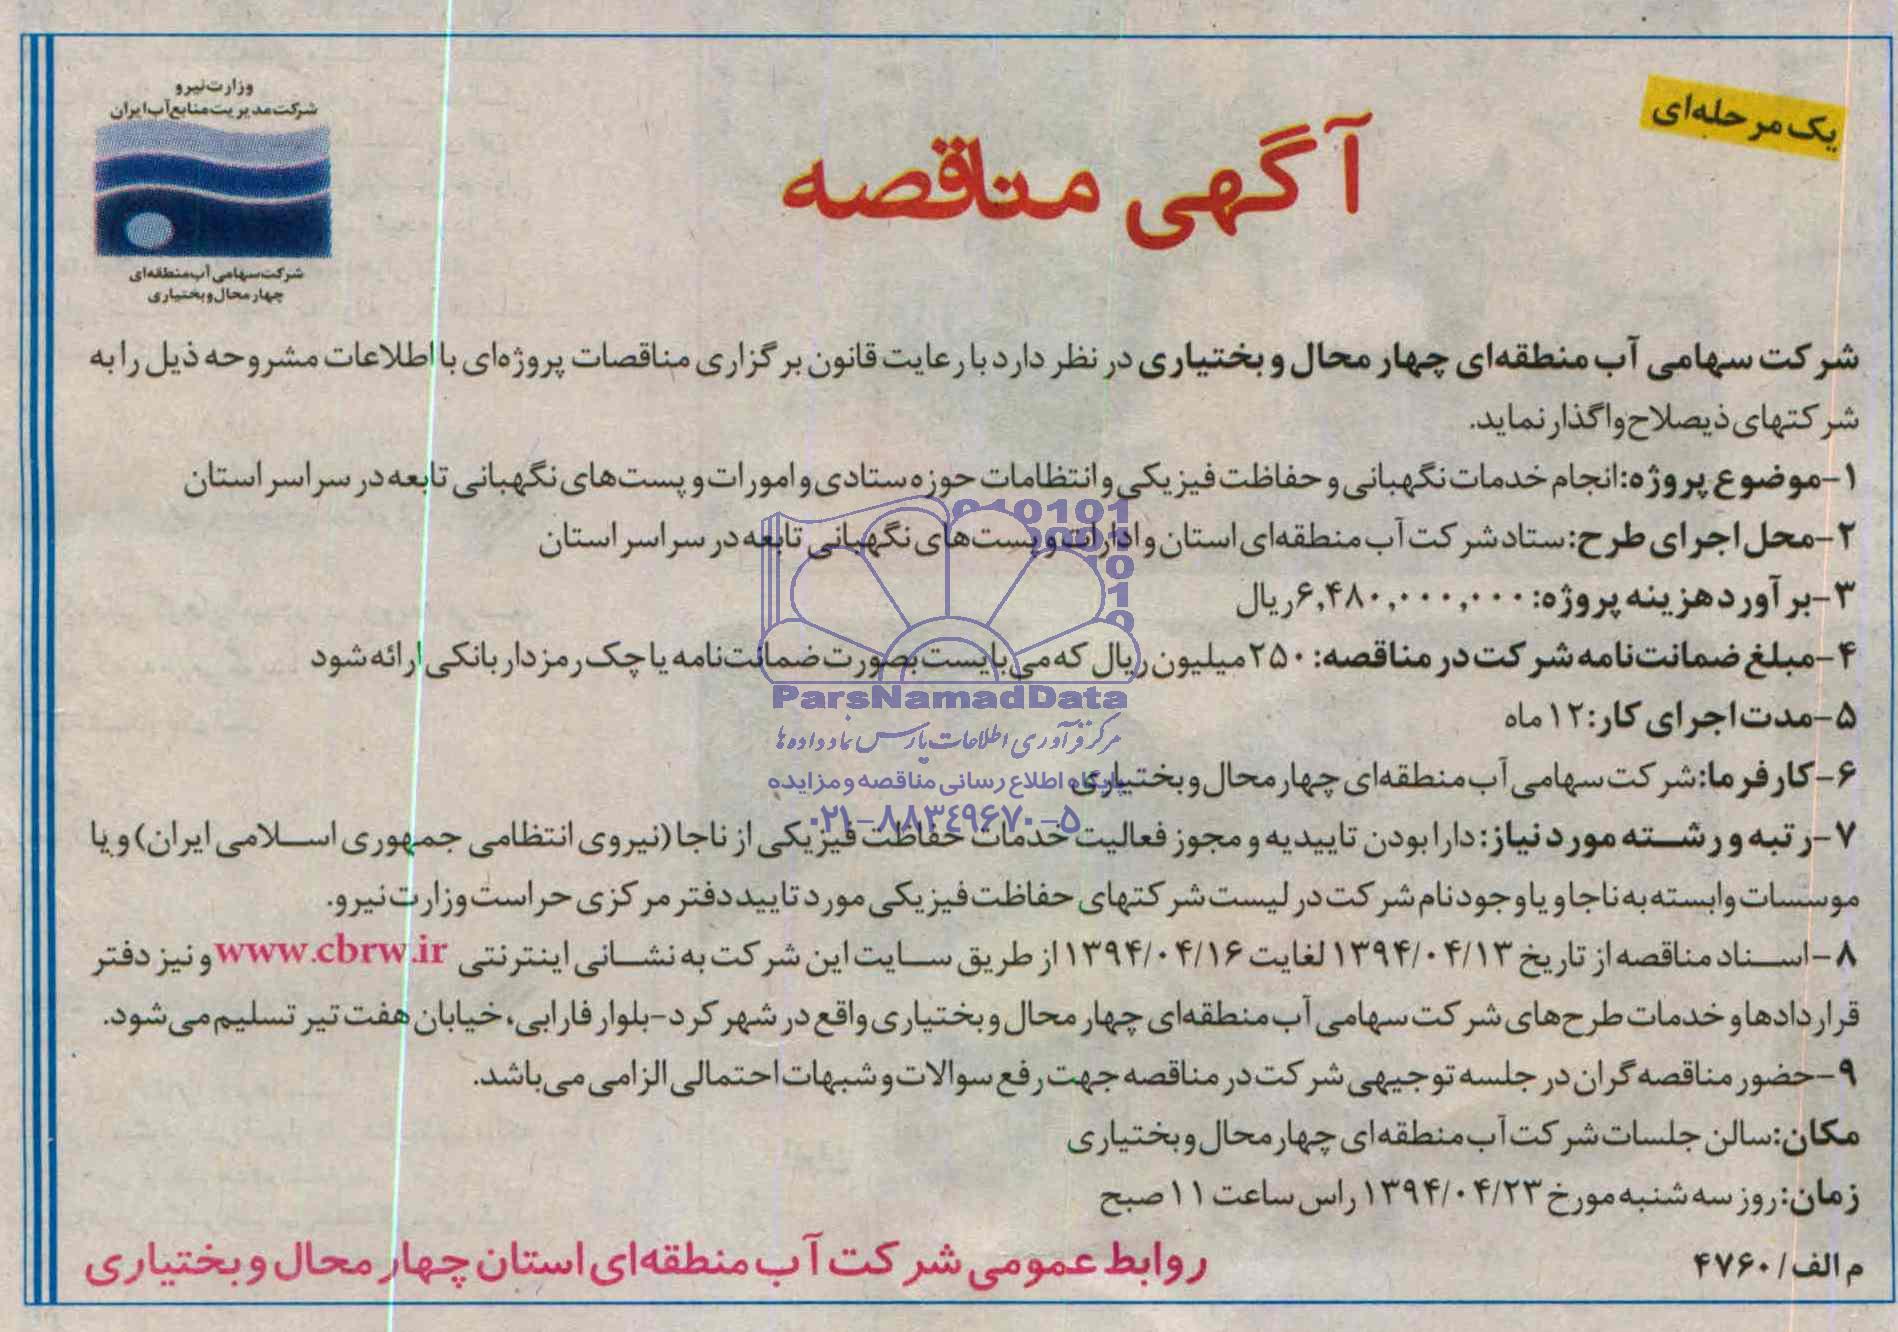 وزارت نیرو
شرکت مدیریت منابع آب ایران
شرکت سهامی آب منطقه‌ای
چهارمحال و بختیاری
یک مرحله‌ای
آگهی مناقصه
شرکت سهامی آب منطقه‌ای چهارمحال و بختیاری در نظر دارد با رعایت قانون برگزاری مناقصات پروژه‌ای با اطلاعات مشروحه ذیل را به
شرکتهای ذیصلاح واگذار نماید.
۱-موضوع پروژه: انجام خدمات نگهبانی و حفاظت فیزیکی و انتظامات حوزه ستادی و امورات و پست‌های نگهبانی تابعه در سراسر استان
۲-محل اجرای طرح: ستاد شرکت آب منطقه‌ای استان و ادارات و پست‌های نگهبانی تابعه در سراسر استان
۳-برآورد هزینه پروژه: ۶,۴۸۰,۰۰۰,۰۰۰ ریال
۴-مبلغ ضمانت‌نامه شرکت در مناقصه: ۲۵۰ میلیون ریال که می‌بایست بصورت ضمانت‌نامه یا چک رمزدار بانکی ارائه شود
۵-مدت اجرای کار: ۱۲ ماه
۶-کارفرما: شرکت سهامی آب منطقه‌ای چهارمحال و بختیاری
۷-رتبه و رشته مورد نیاز: دارا بودن تاییدیه و مجوز فعالیت خدمات حفاظت فیزیکی از ناجا (نیروی انتظامی جمهوری اسلامی ایران) و یا
موسسات وابسته به ناجا و یا وجود نام شرکت در لیست شرکتهای حفاظت فیزیکی مورد تایید دفتر مرکزی حراست وزارت نیرو.
۸-اسناد مناقصه از تاریخ ۱۳۹۴/۰۴/۱۳ لغایت ۱۳۹۴/۰۴/۱۶ از طریق سایت این شرکت به نشانی اینترنتی www.cbrw.ir و نیز دفتر
قراردادها و خدمات طرح‌های شرکت سهامی آب منطقه‌ای چهارمحال و بختیاری واقع در شهرکرد-بلوار فارابی، خیابان هفت تیر تسلیم می‌شود.
۹-حضور مناقصه‌گران در جلسه توجیهی شرکت در مناقصه جهت رفع سوالات و شبهات احتمالی الزامی می‌باشد.
مکان: سالن جلسات شرکت آب منطقه‌ای چهارمحال و بختیاری
زمان: روز سه شنبه مورخ ۱۳۹۴/۰۴/۲۳ راس ساعت ۱۱ صبح
م الف/۴۷۶۰
روابط عمومی شرکت آب منطقه‌ای استان چهارمحال و بختیاری
ParsNamadData
مرکز فرآوری اطلاعات پارس نماد داده‌ها
پایگاه اطلاع رسانی مناقصه و مزایده
۰۲۱-۸۸۳۴۹۶۷۰-۵